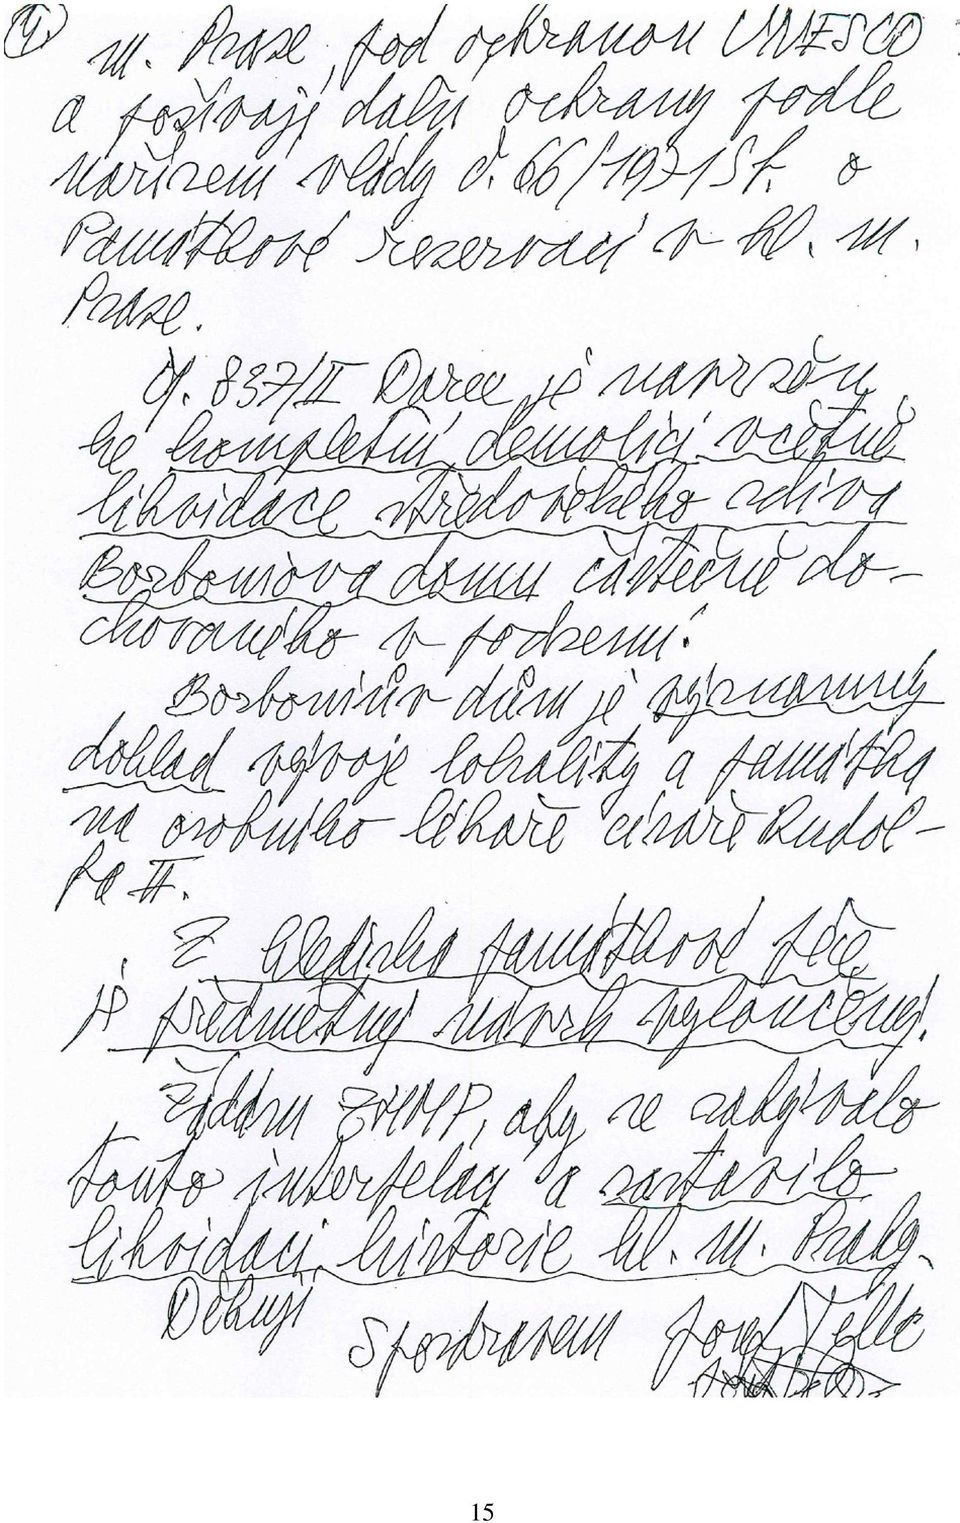 4.) m. Praze, pod ochranou UNESCO
a požívají další ochrany podle
nařízení vlády č. 66/1971 Sb. o
Památkové rezervaci v hl. m.
Praze.
Čp. 837/II Darex je navržen
ke kompletní demolici včetně
likvidace středověkého zdiva
Borboniova domu částečně do-
chovaného v podzemí.
Borboniův dům je významný
doklad vývoje lokality a památka
na osobního lékaře císaře Rudol-
fa II.
Z hlediska památkové péče
je předmětný návrh vyloučený.
Žádám ZHMP, aby se zabývalo
touto interpelací a zastavilo
likvidaci historie hl. m. Prahy.
Děkuji
S pozdravem Josef
15